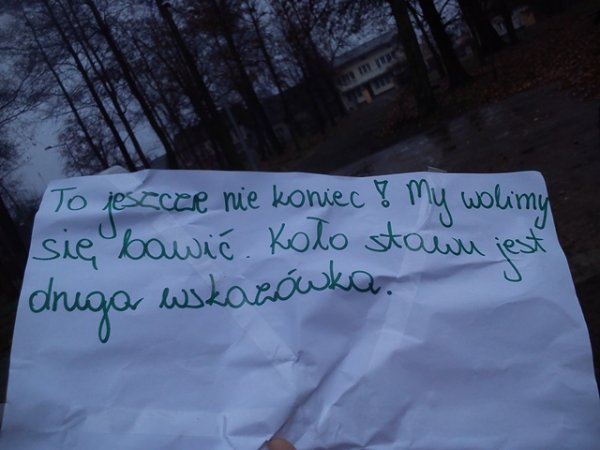 To jeszcze nie koniec! My wolimy
się bawić. Koło stawu jest
druga wskazówka.